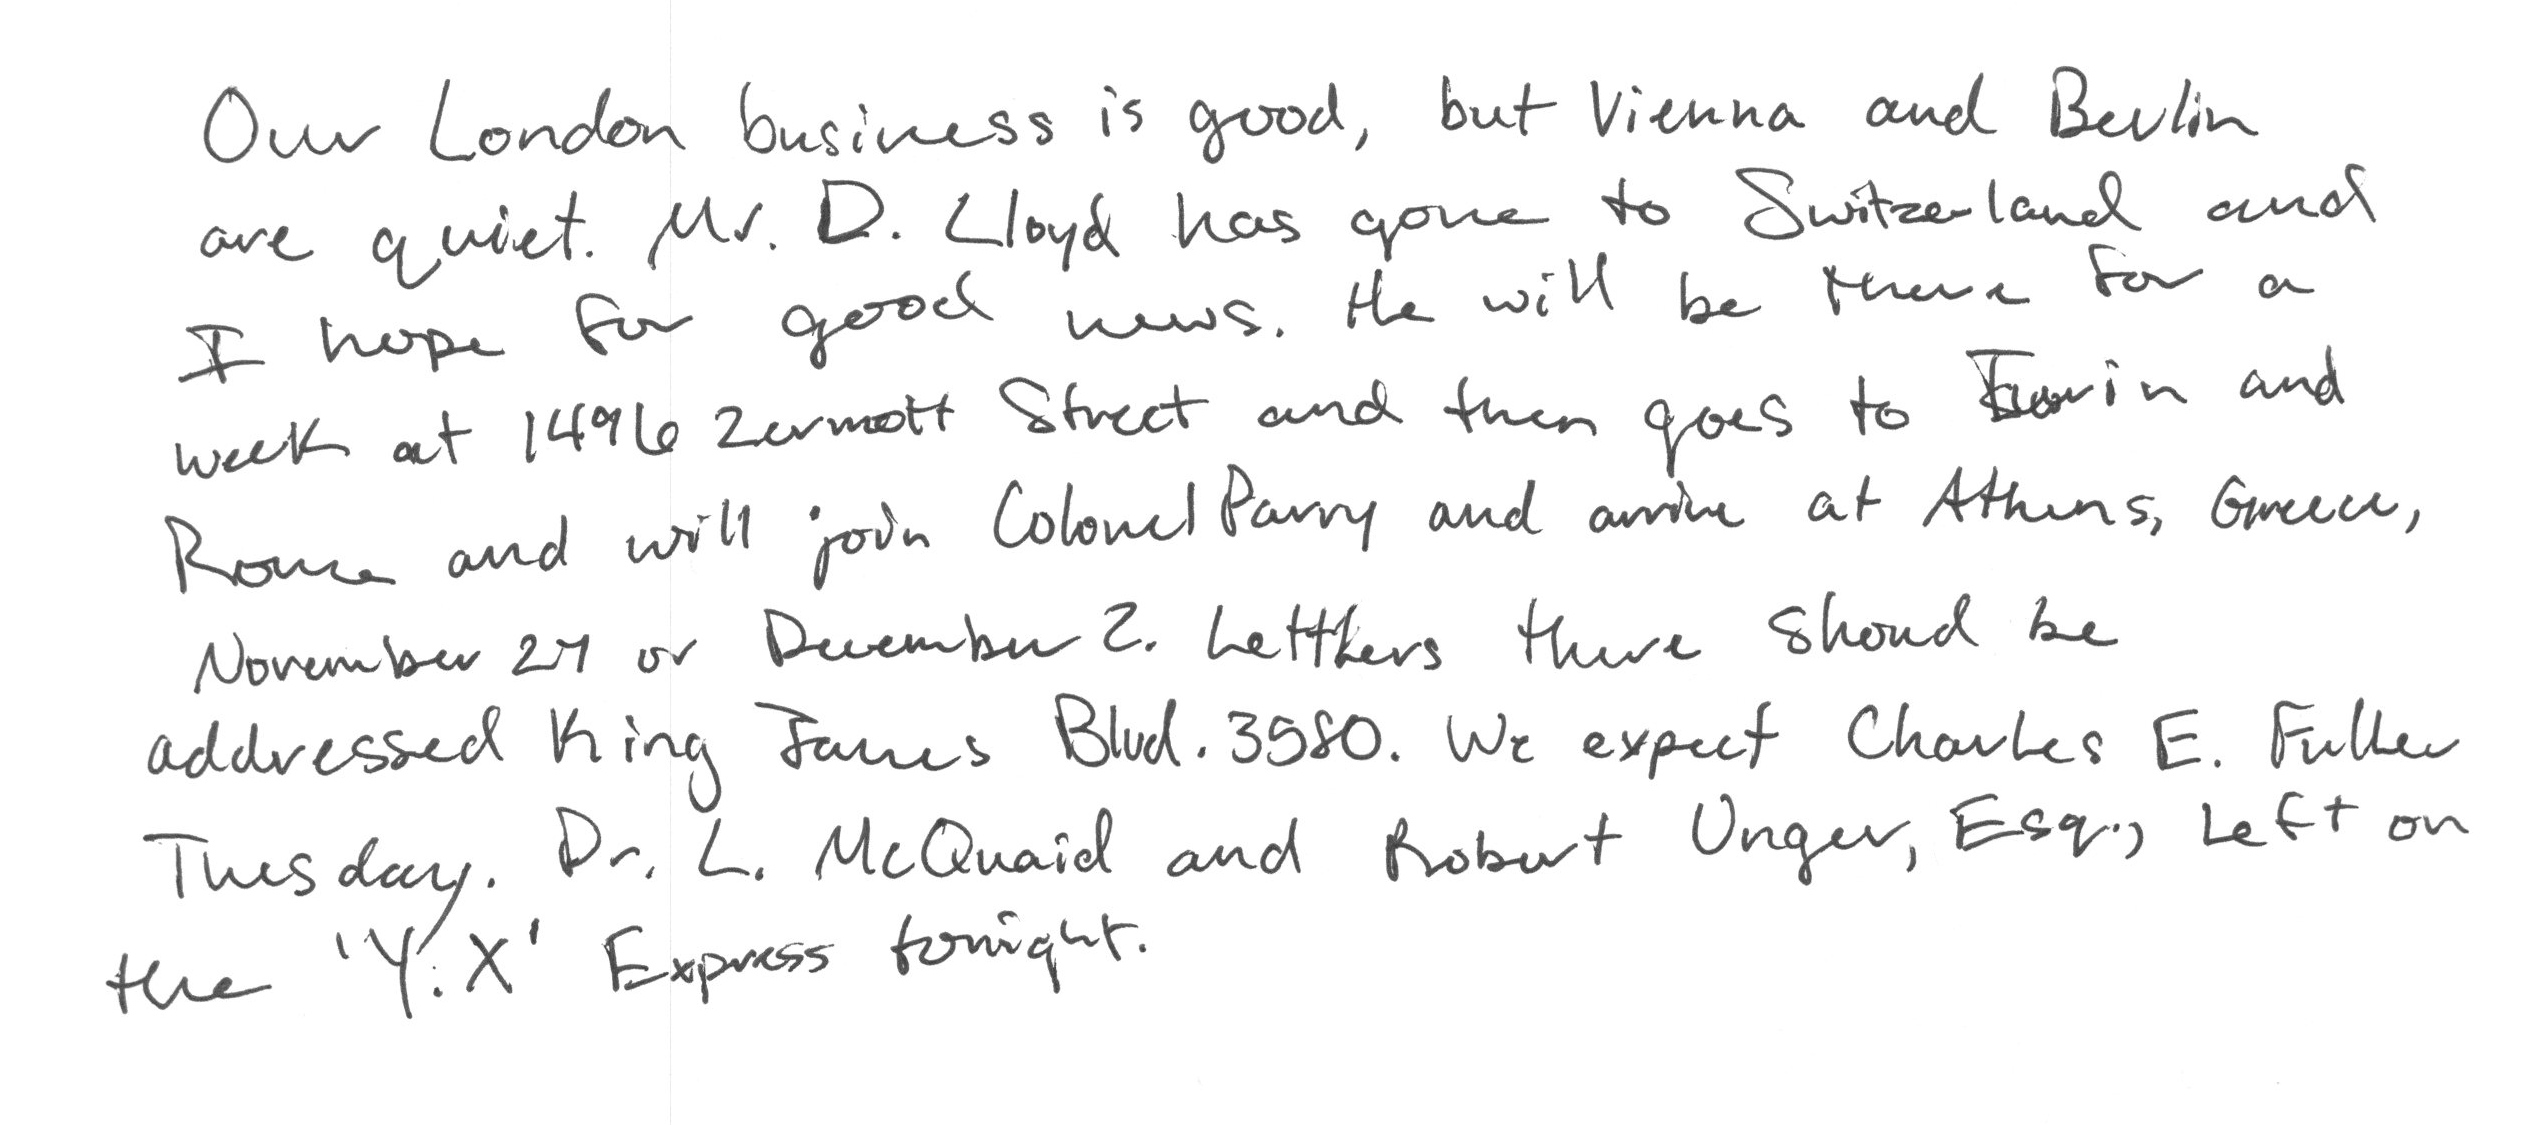 Our London business is good, but Vienna and Berlin
are quiet. Mr. D. Lloyd has gone to Switzerland and
I hope for good news. He will be there for a
week at 1496 Zermott Street and then goes to Turin and
Rome and will join Colonel Parry and arrive at Athens, Greece,
November 27 or December 2. Letthers there shoud be
addressed King James Blvd. 3580. We expect Charles E. Fuller
Tuesday. Dr. L. McQuaid and Robert Unger, Esq., Left on
the 'Y.X' Express tonight.